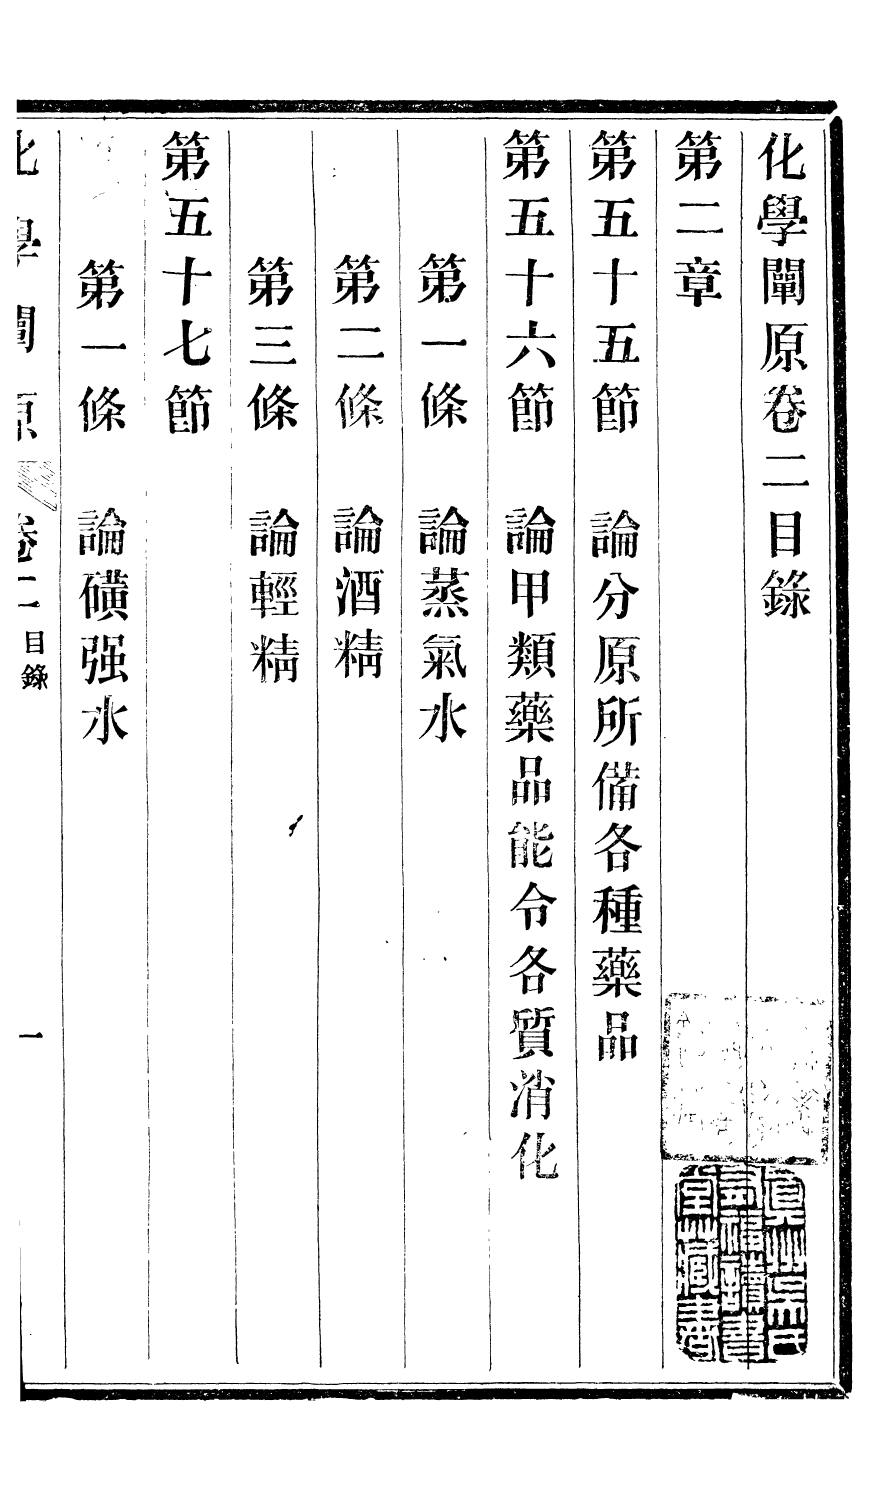 化學闡原卷二目錄
第二章
第五十五節　論分原所備各種藥品
第五十六節　論甲類藥品能令各質消化
第一條　論蒸氣水
第二條　論酒精
第三條　論輕精
第五十七節
第一條　論磺强水
化學闡原　卷二　目錄　一
真州吳氏
有福讀書
堂藏書